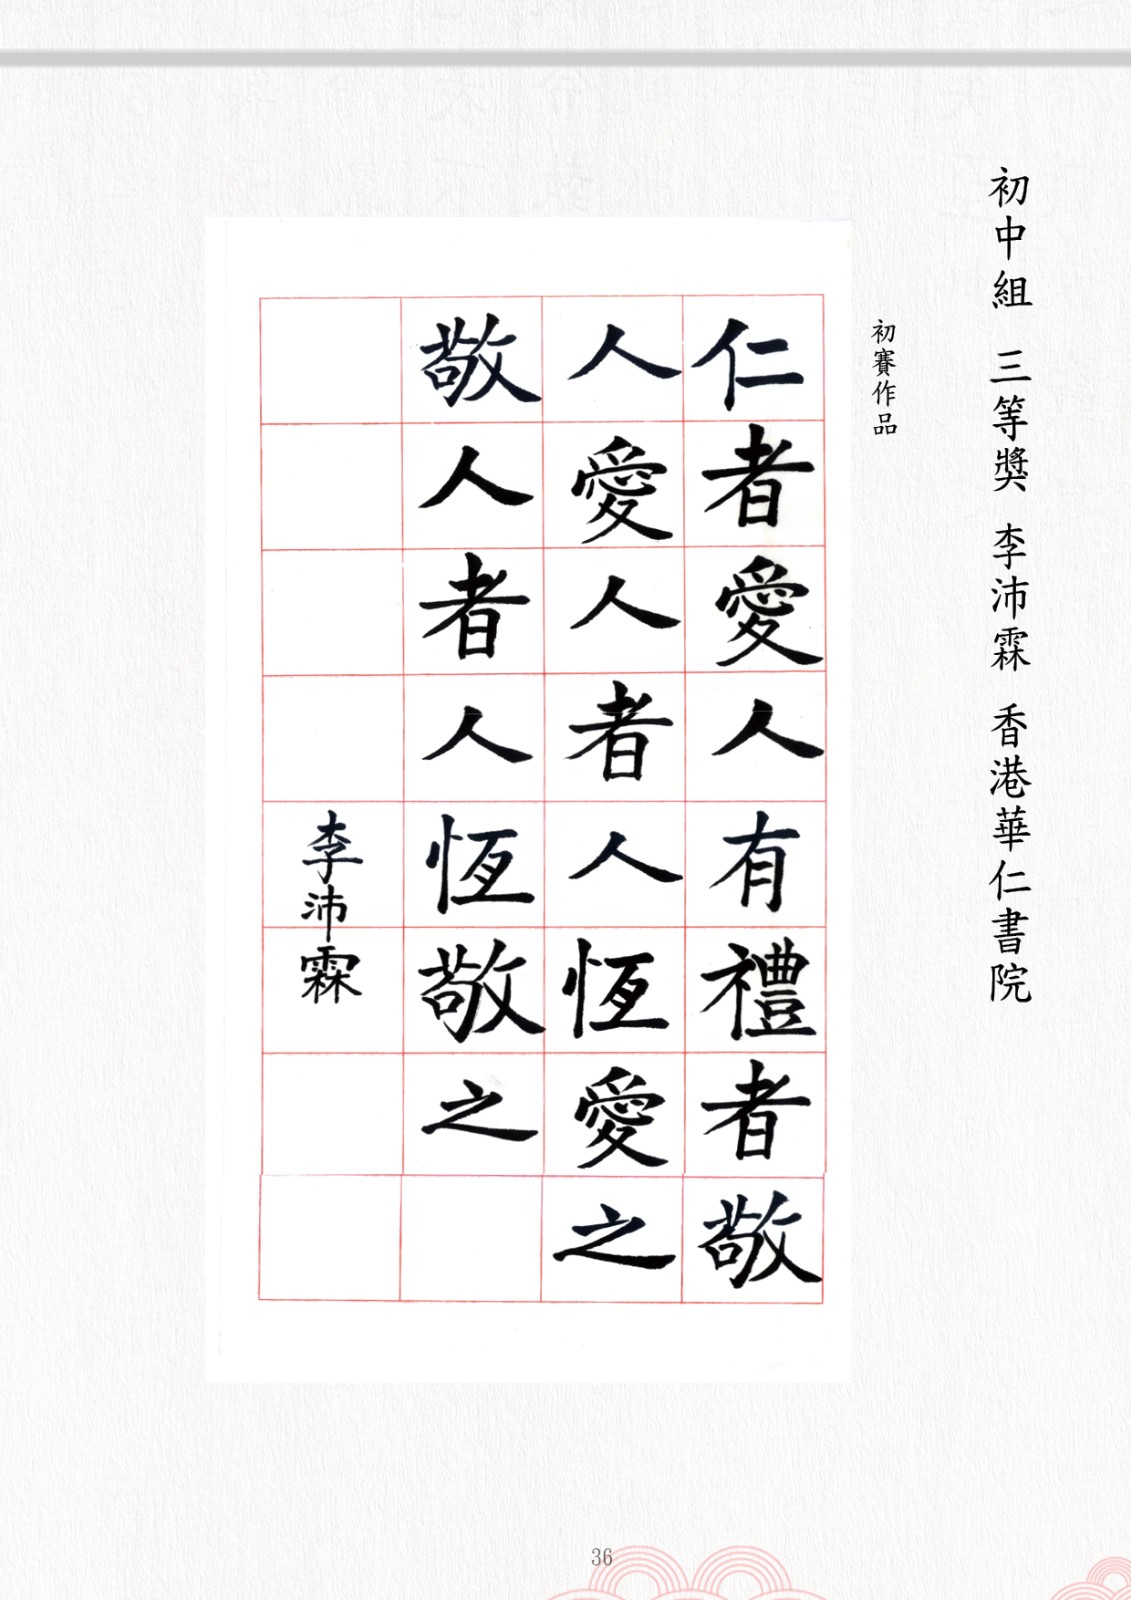 初中組 三等獎 李沛霖 香港華仁書院
初賽作品
仁者愛人有禮者敬
人愛人者人恆愛之
敬人者人恆敬之
李沛霖
36